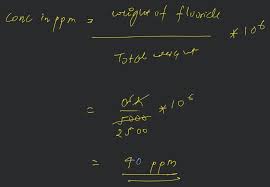 conc in ppm = weight of fluoride * 10^6
Total weight
= * 10^6
5000
2500
= 40 ppm